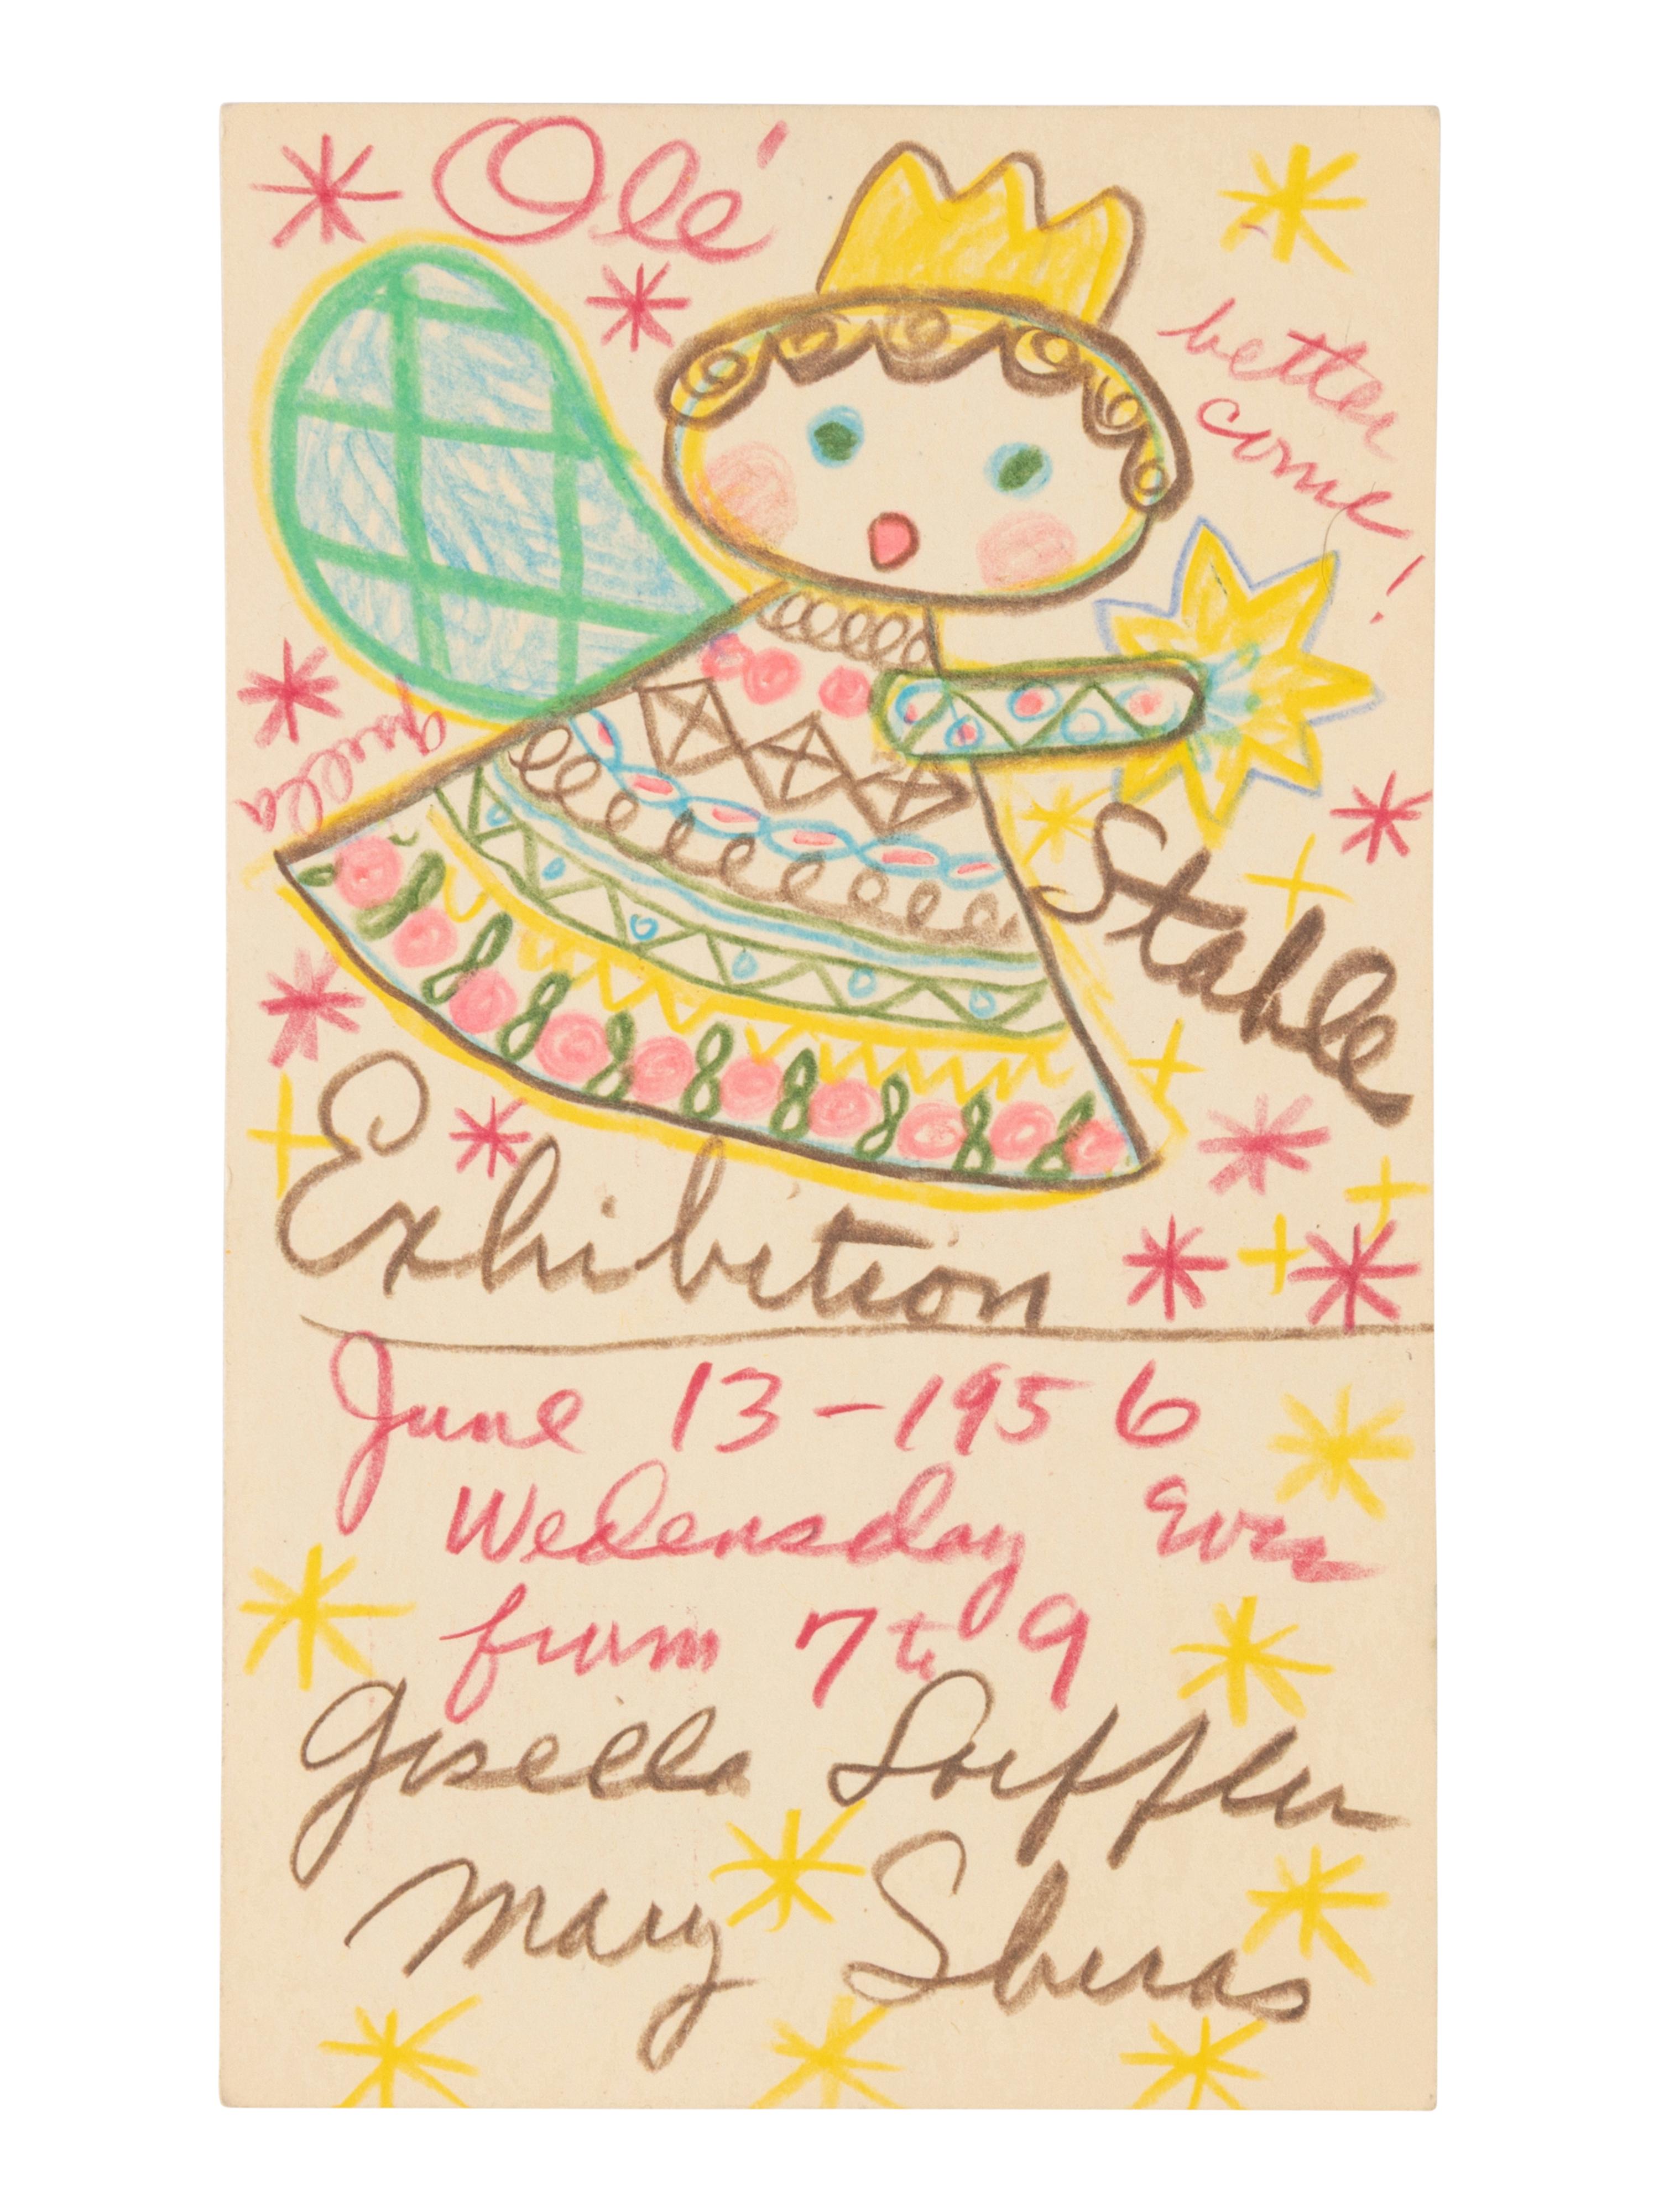 Olé
better
come!
gisella
Stable
Exhibition
June 13-1956
Wedensday Even
from 7 to 9
Gisella Loeffler
Mary